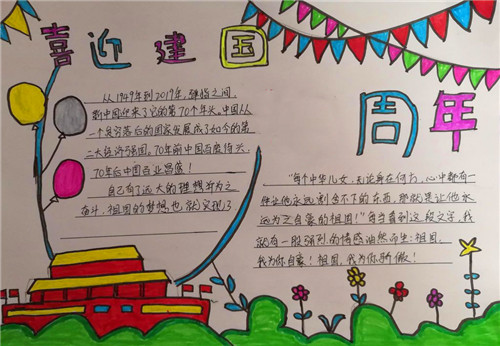 喜迎建国
周年
从1949年到2019年,弹指之间,
新中国迎来了它的第70个年头。中国从
一个贫穷落后的国家发展成了如今的第
二大经济强国。70年前中国百废待兴,
70年后中国百业昌盛!
自己有了远大的理想并为之
奋斗,祖国的梦想也就实现了
"每个中华儿女,无论身在何方,心中都有一
件让他永远割舍不下的东西,那就是让他永
远为之自豪的祖国!"每当看到这段文字,我
就有一股强烈的情感油然而生:祖国,
我为你自豪!祖国,我为你骄傲!